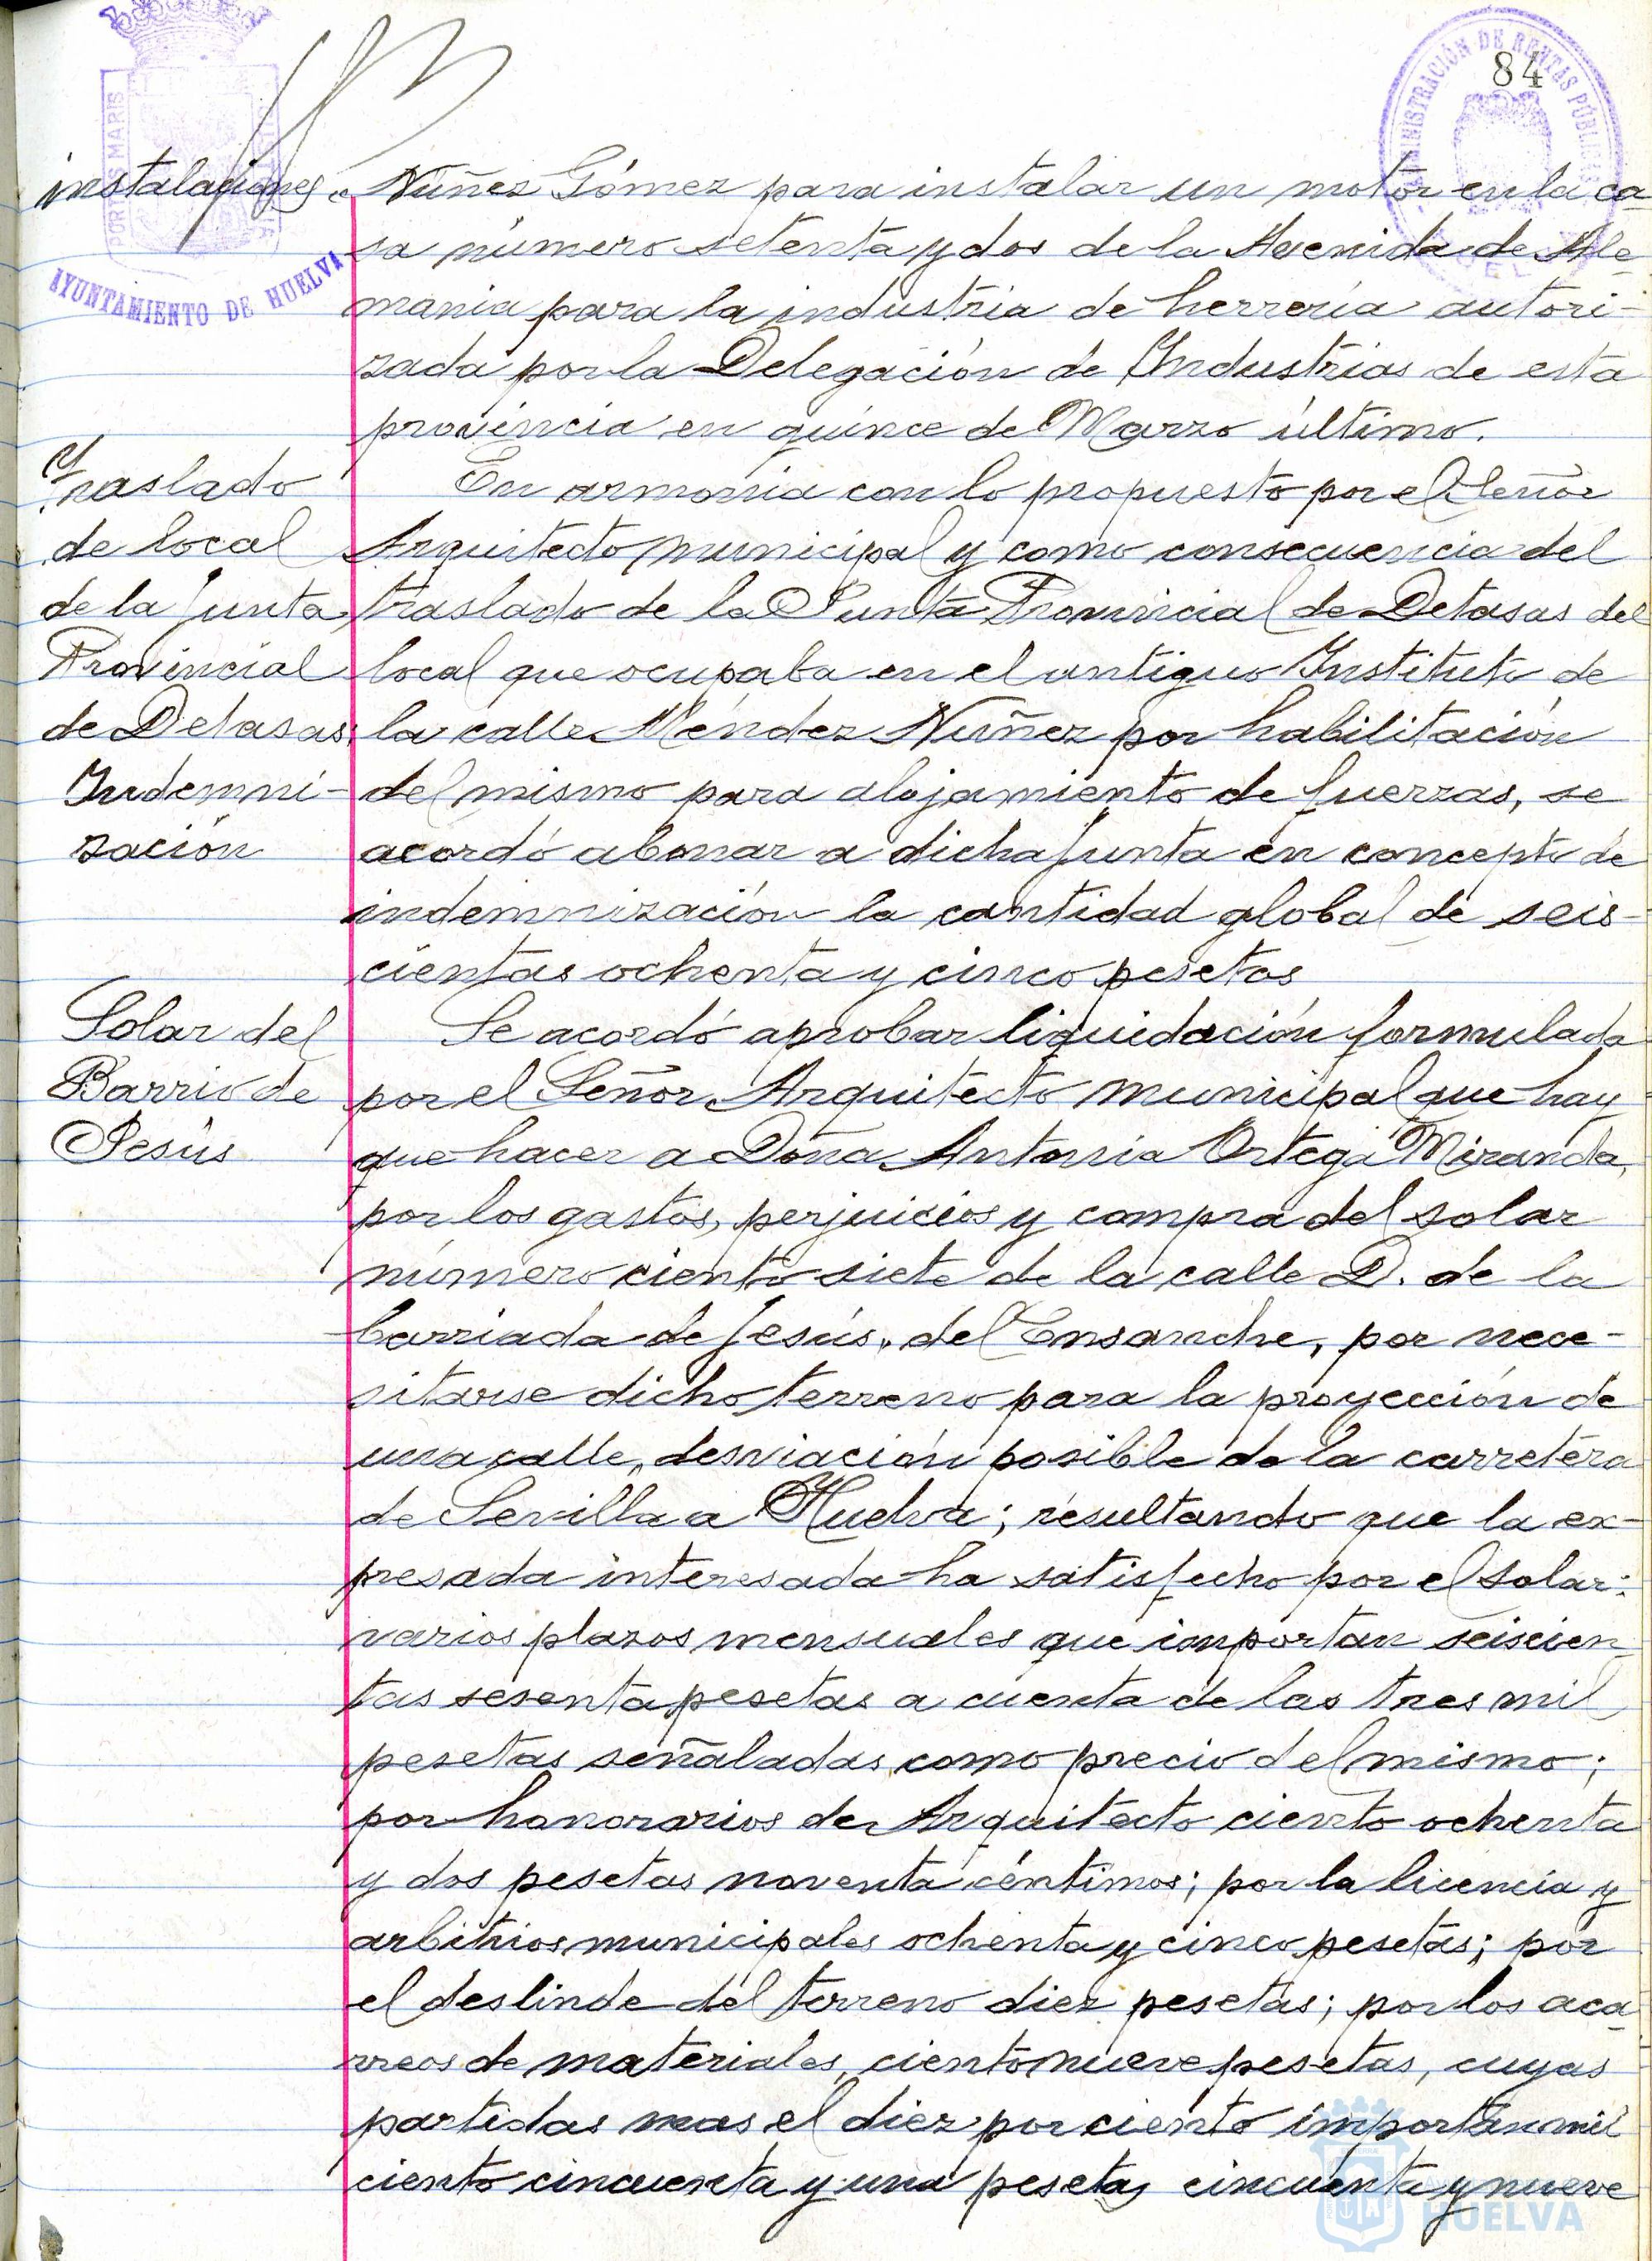 84
ADMINISTRACIÓN DE RENTAS PÚBLICAS
PORTUS MARIS
AYUNTAMIENTO DE HUELVA
instalaciones.
Núñez Gómez para instalar un motor en la ca-
sa número setenta y dos de la Avenida de Ale-
mania para la industria de herrería autori-
zada por la Delegación de Industrias de esta
provincia en quince de Marzo último.
Traslado
de local
de la Junta
Provincial
de Detasas.
Indemni-
zación
En armonía con lo propuesto por el Señor
Arquitecto municipal y como consecuencia del
traslado de la Junta Provincial de Detasas del
local que ocupaba en el antiguo Instituto de
la calle Méndez Núñez por habilitación
del mismo para alojamiento de fuerzas, se
acordó abonar a dicha Junta en concepto de
indemnización la cantidad global de seis-
cientas ochenta y cinco pesetas
Solar del
Barrio de
Jesús
Se acordó aprobar liquidación formulada
por el Señor Arquitecto municipal que hay
que hacer a Doña Antonia Ortega Miranda,
por los gastos, perjuicios y compra del solar
número ciento siete de la calle D. de la
barriada de Jesús, del Ensanche, por nece-
sitarse dicho terreno para la proyección de
una calle, desviación posible de la carretera
de Sevilla a Huelva; resultando que la ex-
presada interesada ha satisfecho por el solar:
varios plazos mensuales que importan seiscien
tas sesenta pesetas a cuenta de las tres mil
pesetas señaladas como precio del mismo;
por honorarios de Arquitecto ciento ochenta
y dos pesetas noventa céntimos; por la licencia y
arbitrios municipales ochenta y cinco pesetas; por
el deslinde del terreno diez pesetas; por los aca-
rreos de materiales, ciento nueve pesetas, cuyas
partidas mas el diez por ciento importan mil
ciento cincuenta y una pesetas cincuenta y nueve
HUELVA